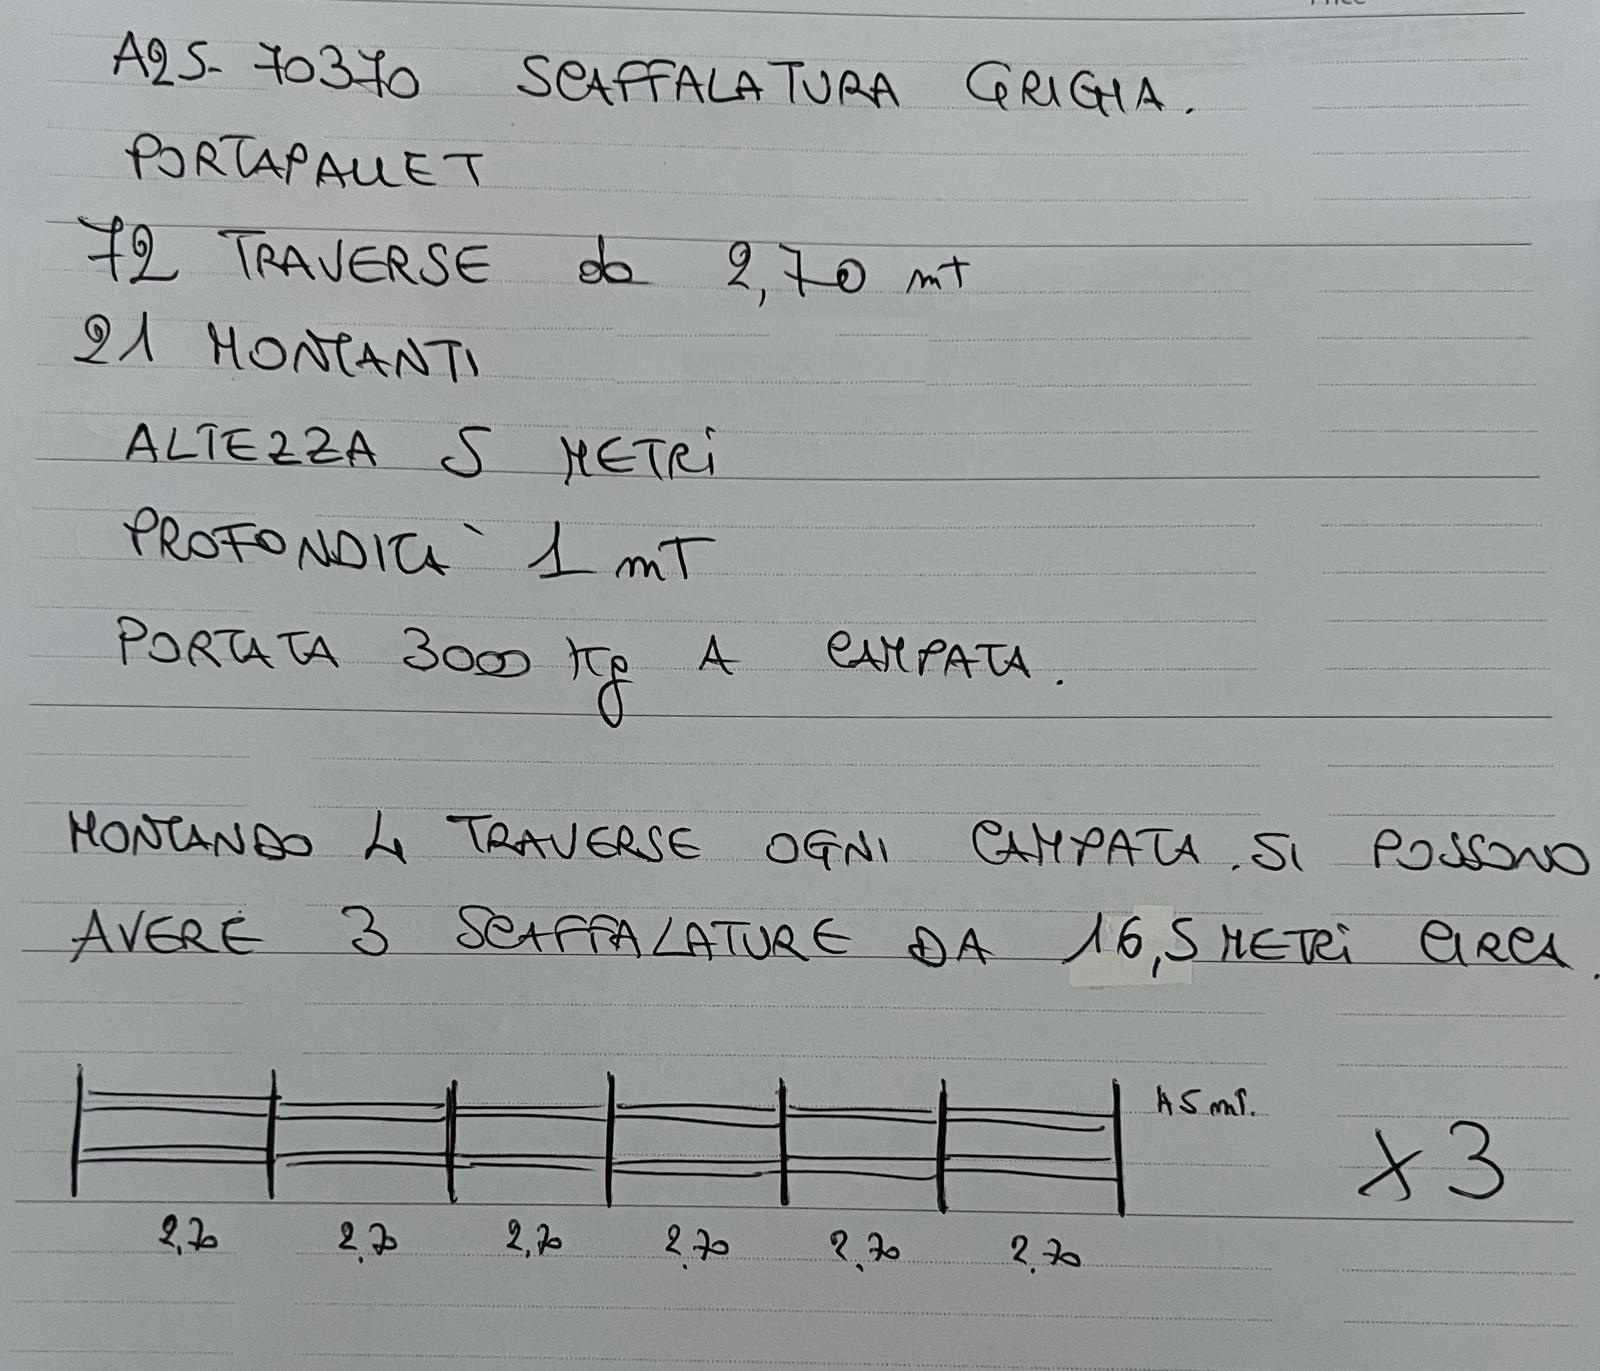 A25-70370 SCAFFALATURA GRIGIA.
PORTAPALLET
72 TRAVERSE da 2,70 mT
21 MONTANTI
ALTEZZA 5 METRi
PROFONDITA' 1 mT
PORTATA 3000 Kg A CAMPATA.
MONTANDO 4 TRAVERSE OGNI CAMPATA SI POSSONO
AVERE 3 SCAFFALATURE DA 16,5 METRi CIRCA.
H 5 mT.
X 3
2,70 2,70 2,70 2,70 2,70 2,70